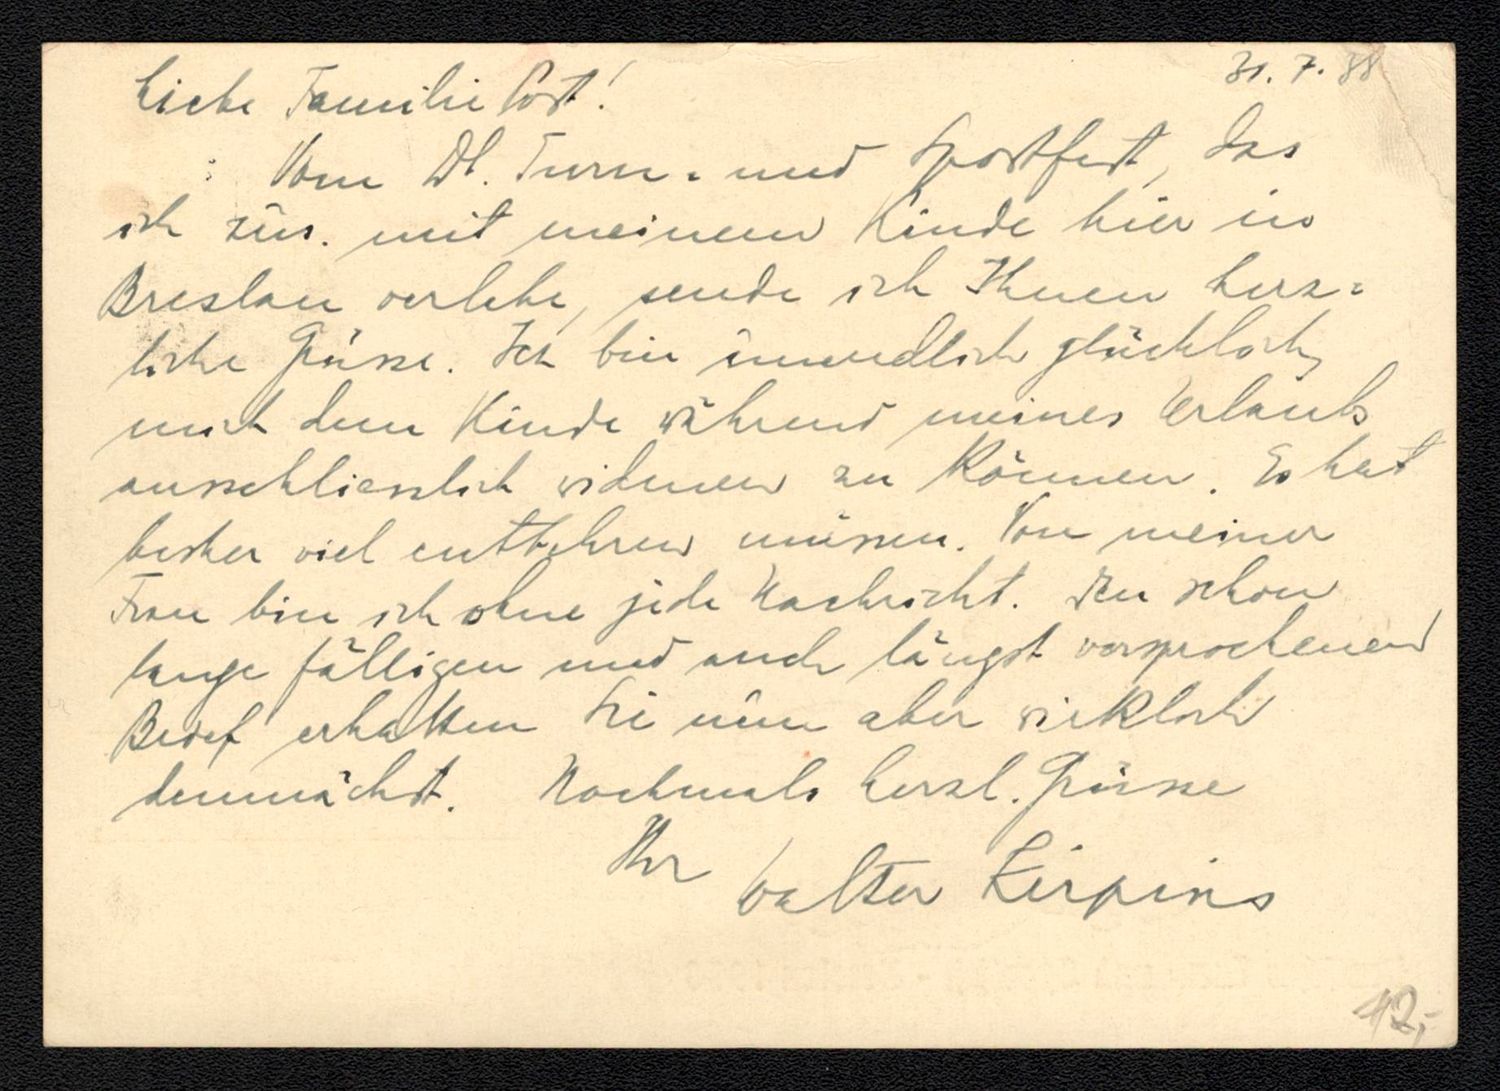 31. 7. 38
Liebe Familie Post!
Vom Dt. Turn- und Sportfest, das
ich zus. mit meinem Kinde hier in
Breslau verlebe, sende ich Ihnen herz-
liche Grüsse. Ich bin unendlich glücklich,
mich dem Kinde während meines Urlaubs
ausschliesslich widmen zu können. Es hat
bisher viel entbehren müssen. Von meiner
Frau bin ich ohne jede Nachricht. Den schon
lange fälligen und auch längst versprochenen
Brief erhalten Sie nun aber wirklich
demnächst. Nochmals herzl. Grüsse
Ihr Walter Zirpins
12,-